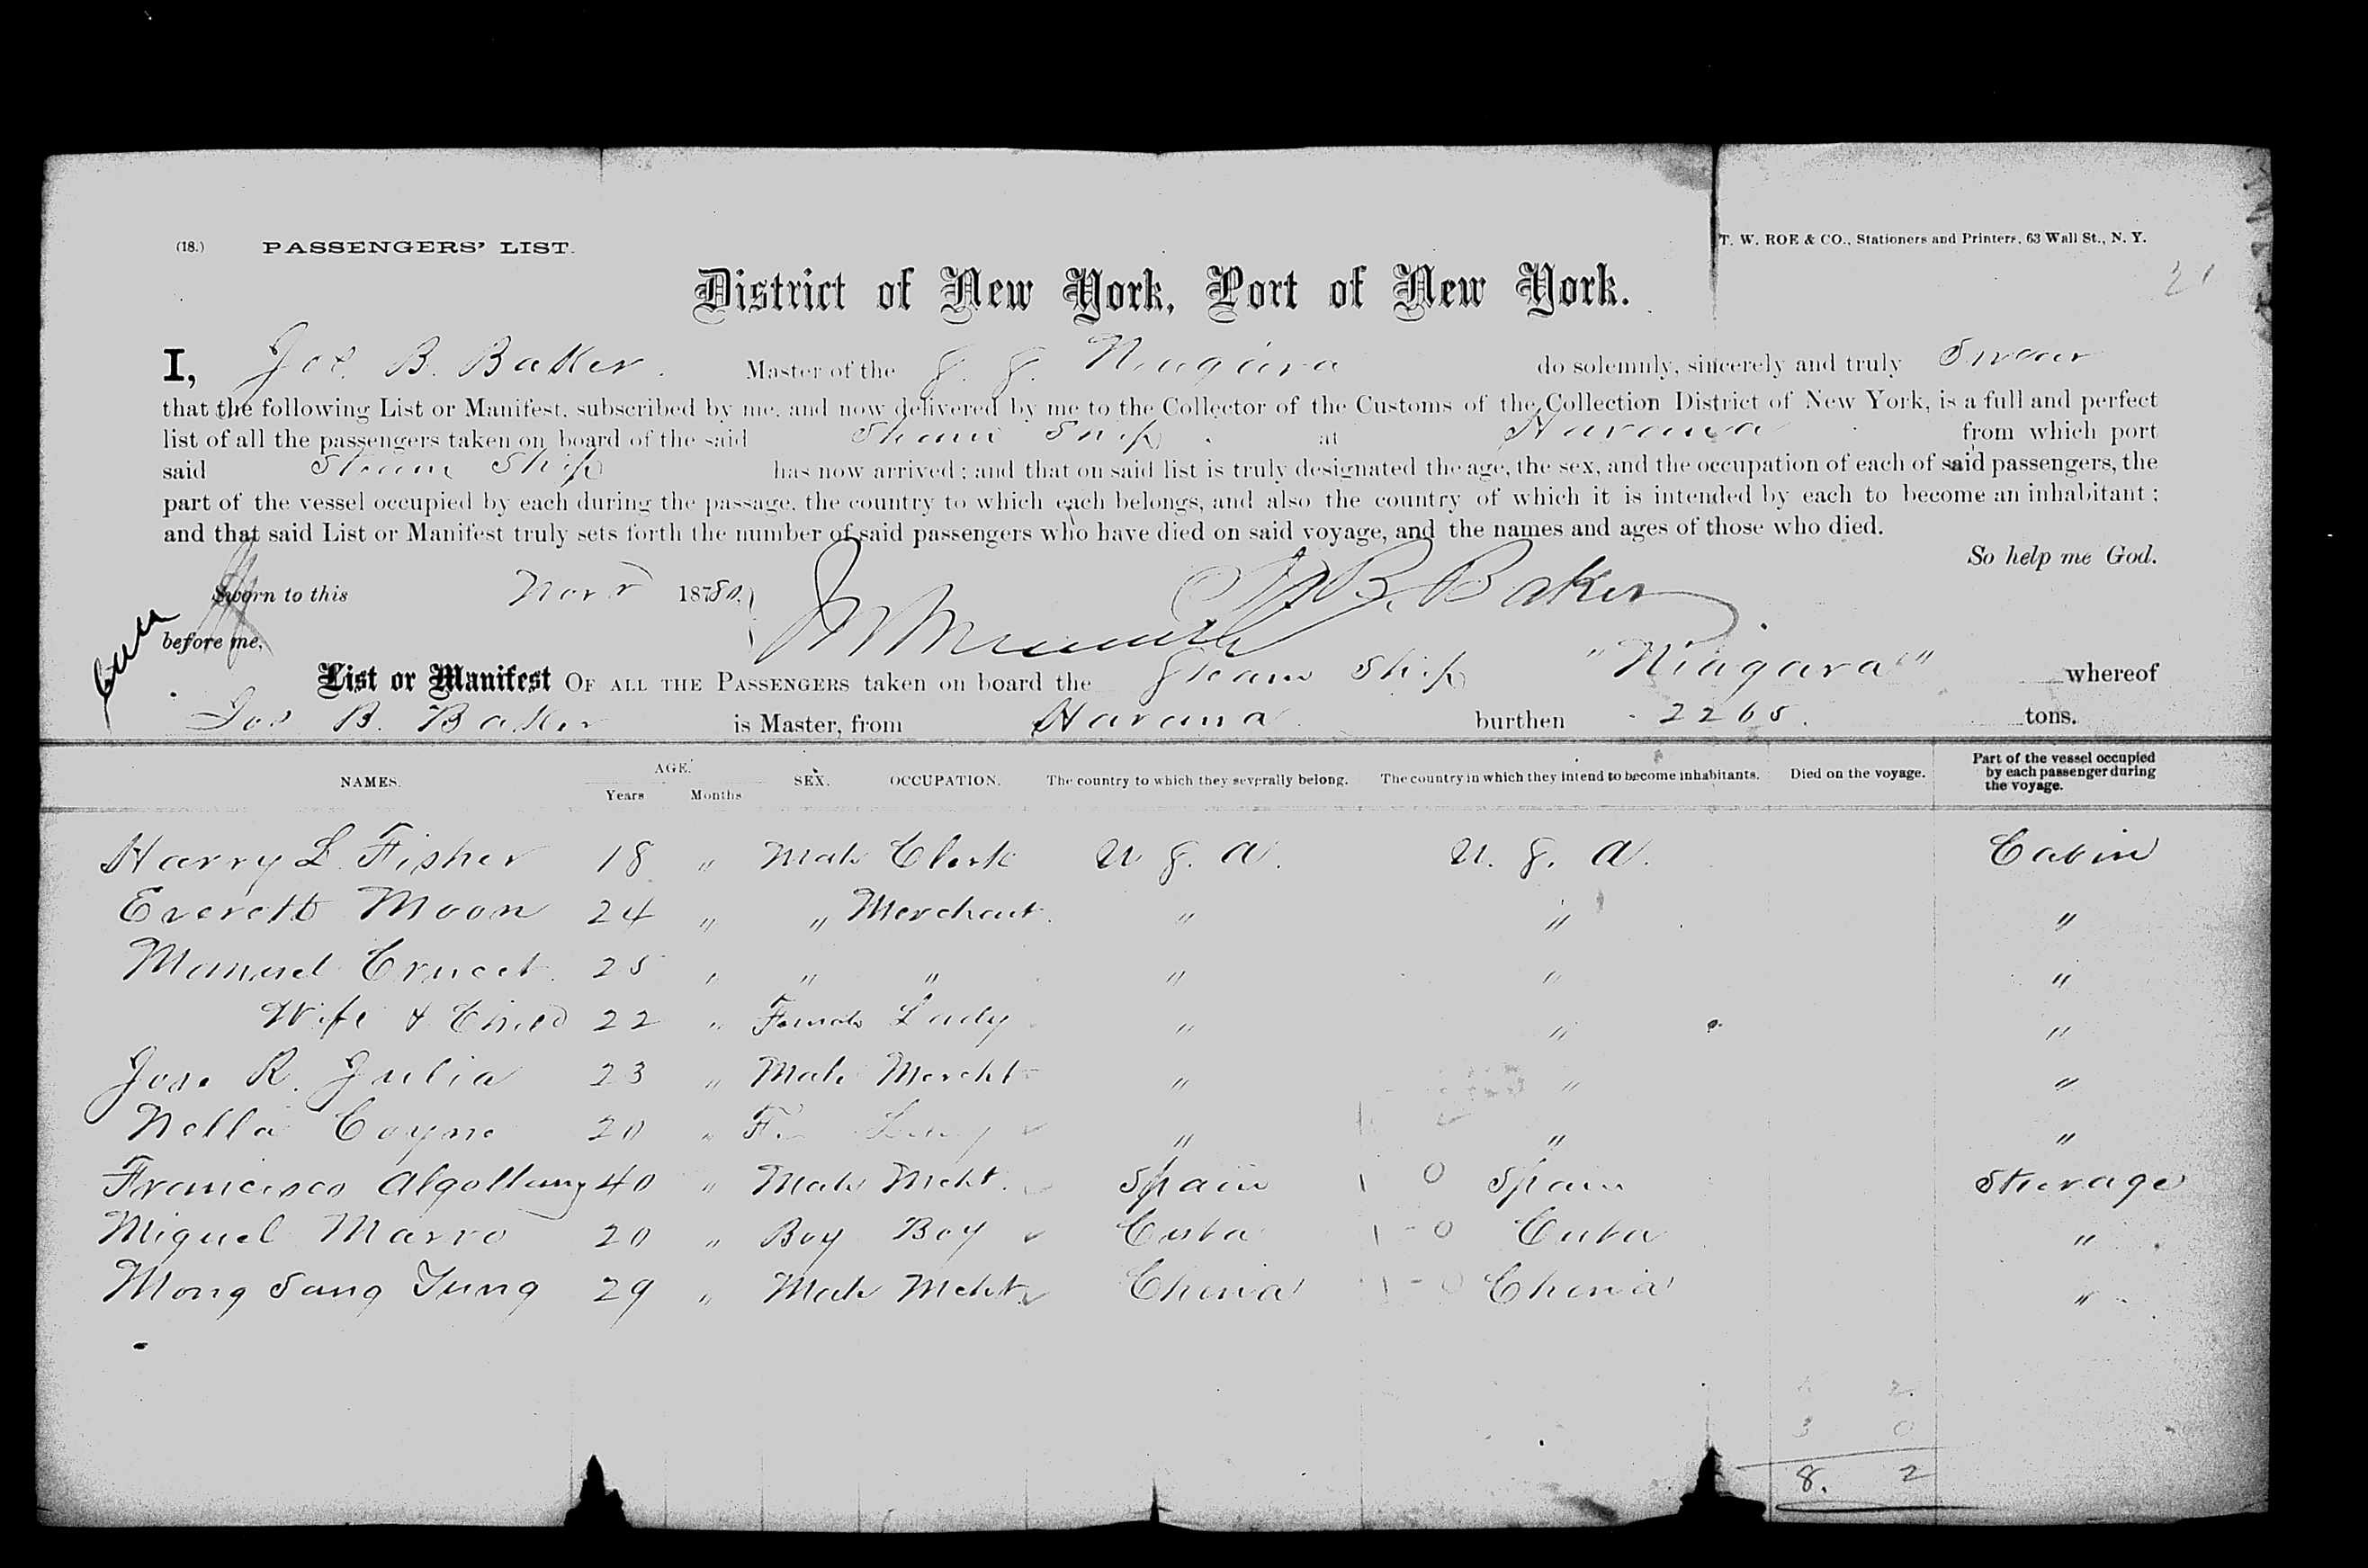 (18.) PASSENGERS' LIST. T. W. ROE & CO., Stationers and Printers, 63 Wall St., N. Y.
21
District of New York, Port of New York.
I, Jos. B. Baker. Master of the S. S. Niagara do solemnly, sincerely and truly Swear
that the following List or Manifest, subscribed by me, and now delivered by me to the Collector of the Customs of the Collection District of New York, is a full and perfect
list of all the passengers taken on board of the said Steam Ship at Havana from which port
said Steam Ship has now arrived; and that on said list is truly designated the age, the sex, and the occupation of each of said passengers, the
part of the vessel occupied by each during the passage, the country to which each belongs, and also the country of which it is intended by each to become an inhabitant;
and that said List or Manifest truly sets forth the number of said passengers who have died on said voyage, and the names and ages of those who died.
So help me God.
Sworn to this Novr 18780. B. Baker
before me.
List or Manifest OF ALL THE PASSENGERS taken on board the Steam Ship "Niagara" whereof
Jos B. Baker is Master, from Havana burthen 2265. tons.
NAMES. AGE. Years Months SEX. OCCUPATION. The country to which they severally belong. The country in which they intend to become inhabitants. Died on the voyage. Part of the vessel occupied by each passenger during the voyage.
Harry L. Fisher 18 " Male Clerk U. S. A. U. S. A. Cabin
Everett Moon 24 " " Merchant " " "
Manuel 25 " " " " " "
Wife & Child 22 " Female Lady " " "
Jose R. Julia 23 " Male Mercht " " "
Nella Coyne 20 " F. Lady " " "
Francisco 40 " Male Mcht. Spain 1 0 Spain Steerage
Miguel Marro 20 " Boy Boy Cuba 1 - 0 Cuba "
Mong Sang Tung 29 " Male Mcht. China 1 - 0 China "
2.
3 0
8. 2